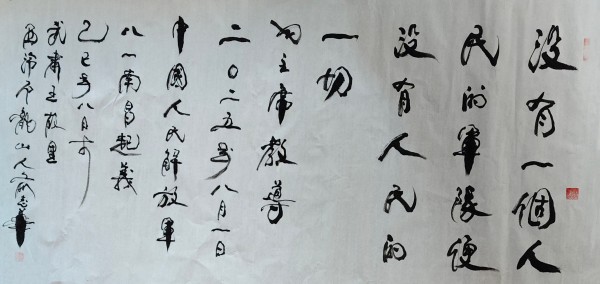 没有一個人
民的軍隊便
没有人民的
一切
毛主席教導
二〇二五年八月一日
中國人民解放軍
八一南昌起義
乙巳年八月於
武肅王故里
龍山人